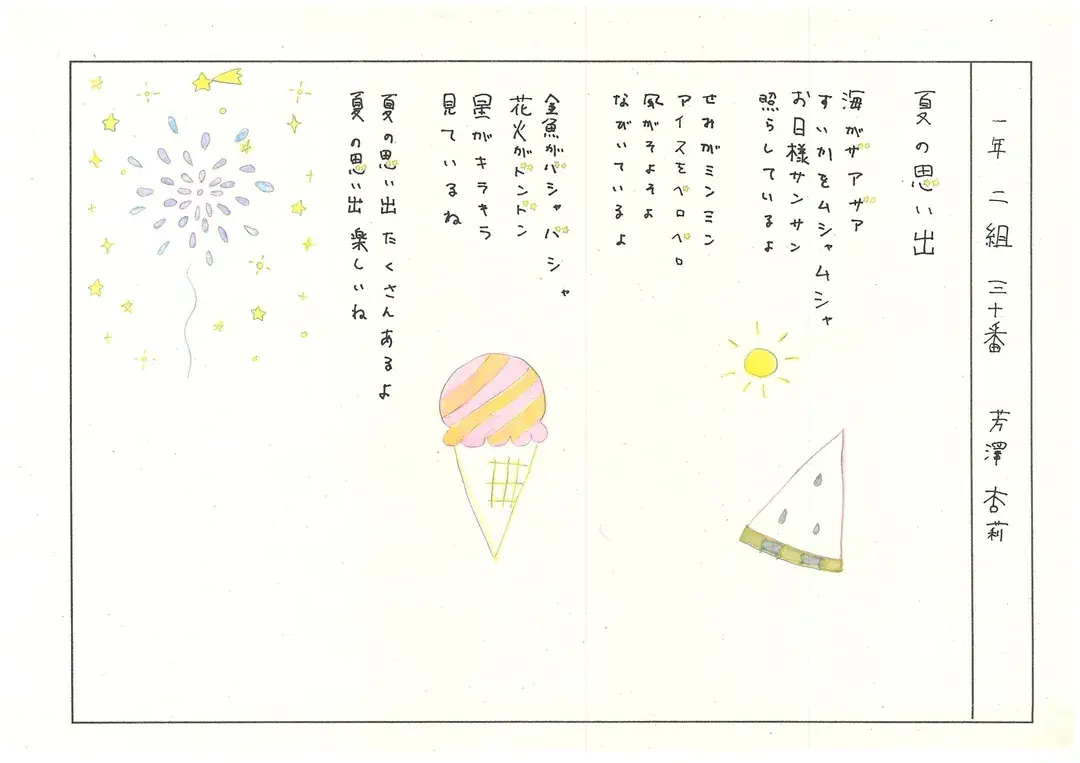 一年 二組 三十番 芳澤 杏莉
夏の思い出
海がザアザア
すいかをムシャムシャ
お日様サンサン
照らしているよ
せみがミンミン
アイスをペロペロ
風がそよそよ
なびいているよ
金魚がパシャパシャ
花火がドンドン
星がキラキラ
見ているね
夏の思い出 たくさんあるよ
夏の思い出 楽しいね